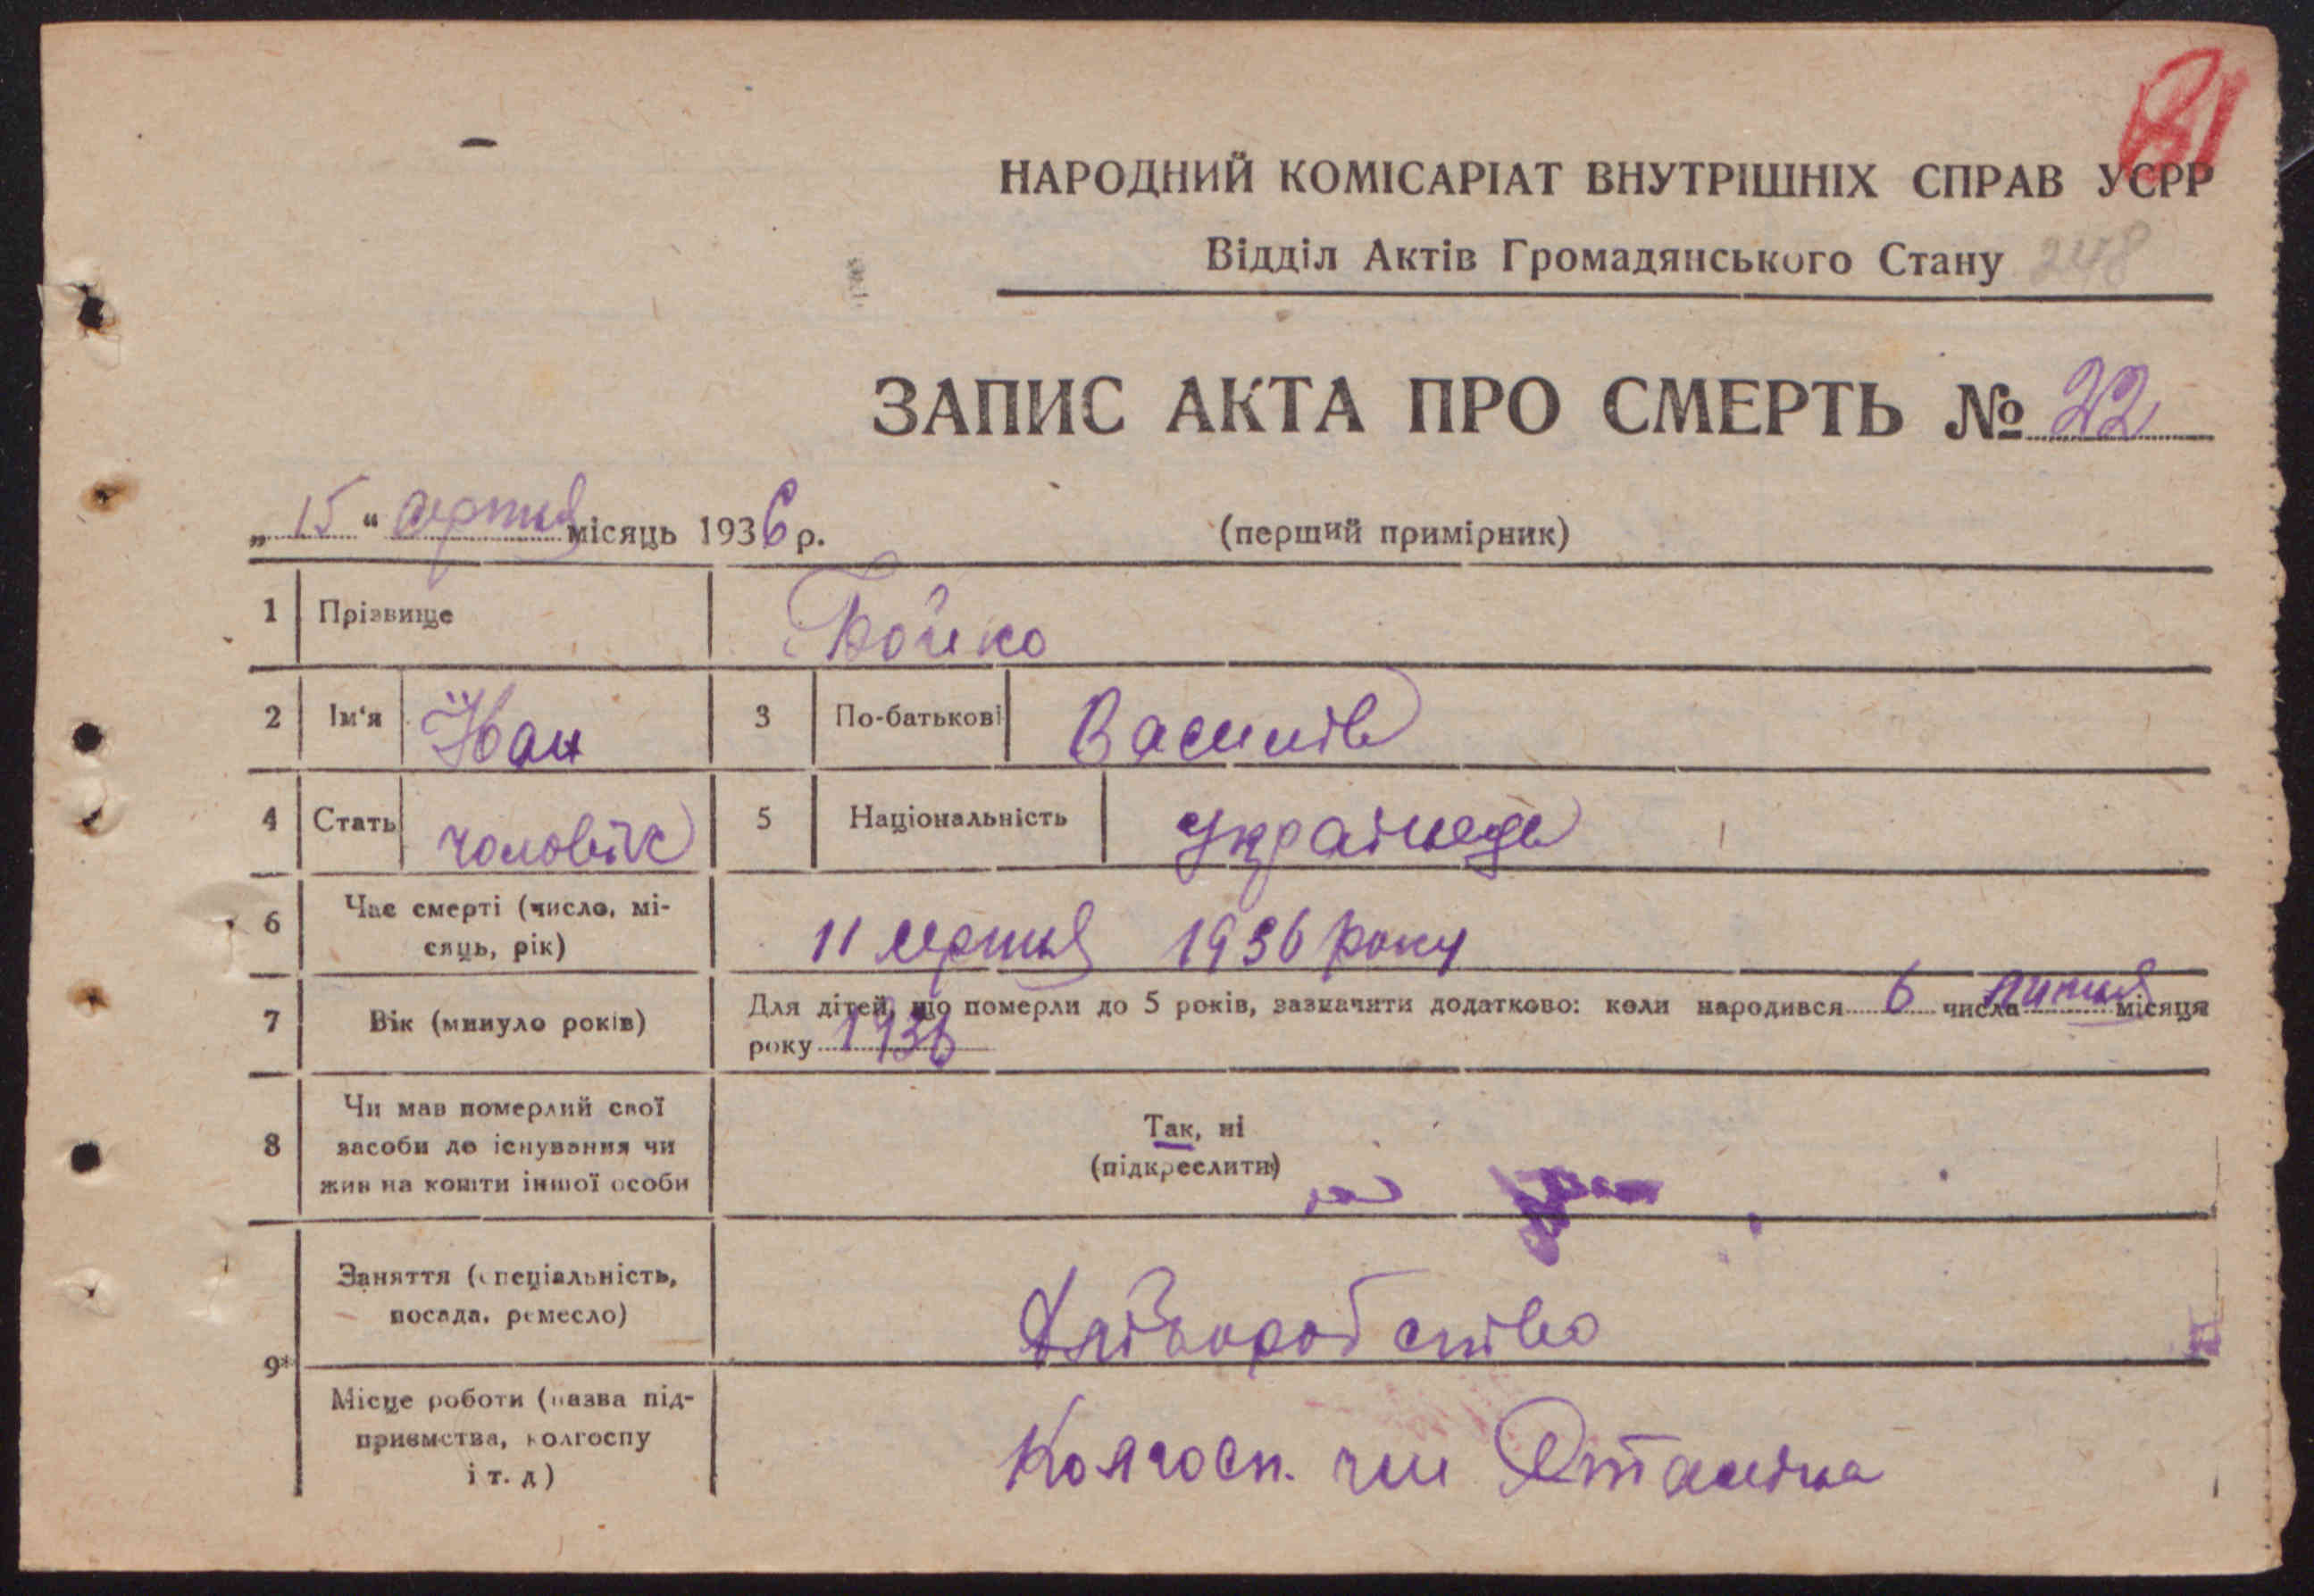 81
НАРОДНИЙ КОМІСАРІАТ ВНУТРІШНІХ СПРАВ УСРР
Відділ Актів Громадянського Стану 248
ЗАПИС АКТА ПРО СМЕРТЬ № 22
„ 15 “ серпня місяць 1936 р. (перший примірник)
1 Прізвище Бойко
2 Ім‘я Іван 3 По-батькові Василів
4 Стать чоловік 5 Національність українець
6 Час смерті (число, мі-
сяць, рік) 11 серпня 1936 року
7 Вік (минуло років) Для дітей, що померли до 5 років, зазначити додатково: коли народився 6 числа липня місяця
року 1936
8 Чи мав померлий свої
засоби до існування чи
жив на кошти іншої особи
Так, ні
(підкреслити)
9* Заняття (спеціальність,
посада, ремесло) Хліборобство
Місце роботи (назва під-
приємства, колгоспу
і т. д) Колгосп. ім Сталіна